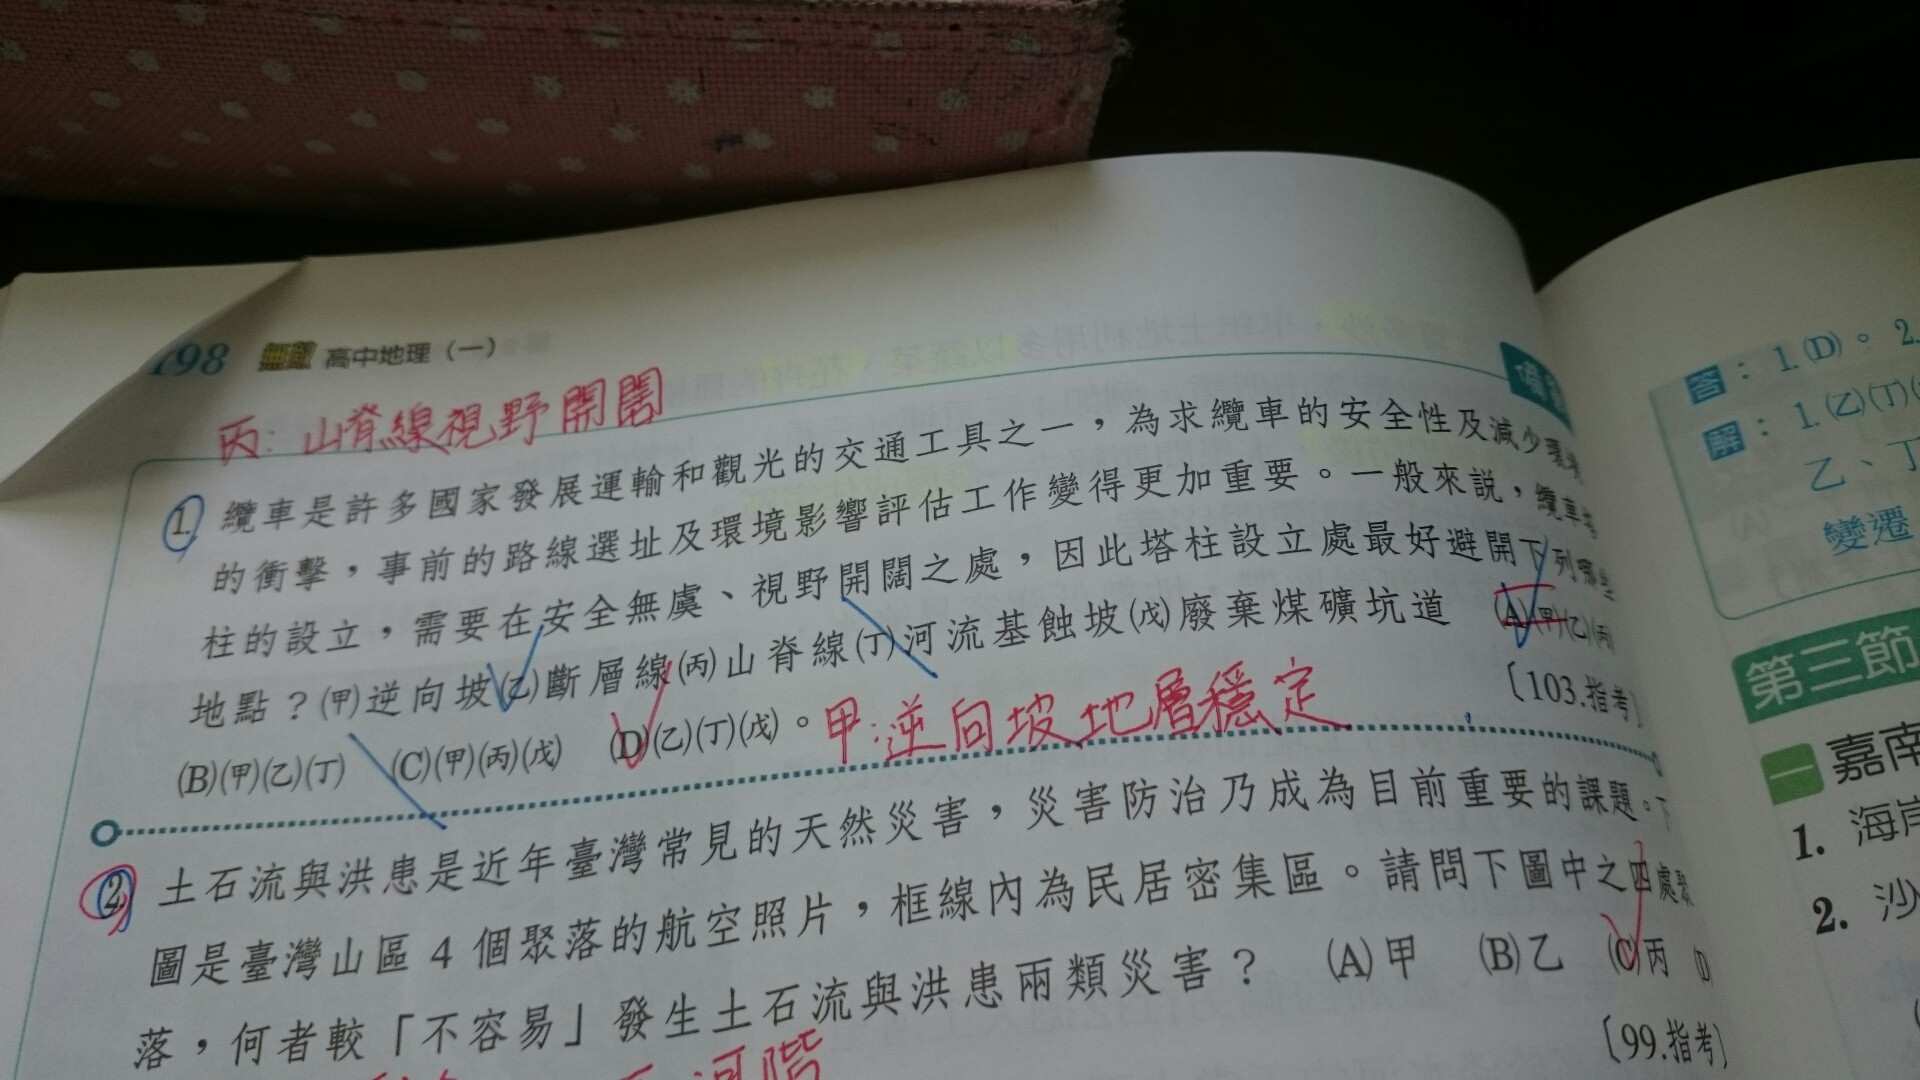 198 無敵 高中地理(一)
丙:山脊線視野開闊
1. 纜車是許多國家發展運輸和觀光的交通工具之一,為求纜車的安全性及減少環境
的衝擊,事前的路線選址及環境影響評估工作變得更加重要。一般來說,纜車塔
柱的設立,需要在安全無虞、視野開闊之處,因此塔柱設立處最好避開下列哪些
地點?(甲)逆向坡(乙)斷層線(丙)山脊線(丁)河流基蝕坡(戊)廢棄煤礦坑道 (A)(甲)(乙)(丙)
(B)(甲)(乙)(丁) (C)(甲)(丙)(戊) (D)(乙)(丁)(戊)。 〔103.指考〕
甲:逆向坡地層穩定
2. 土石流與洪患是近年臺灣常見的天然災害,災害防治乃成為目前重要的課題。下
圖是臺灣山區 4 個聚落的航空照片,框線內為民居密集區。請問下圖中之四處聚
落,何者較「不容易」發生土石流與洪患兩類災害? (A)甲 (B)乙 (C)丙 (D
〔99.指考〕
河階
答:1.(D)。2.
解:1.(乙)(丁)(
乙、丁
變遷
第三節
一 嘉南
1. 海岸
2. 沙